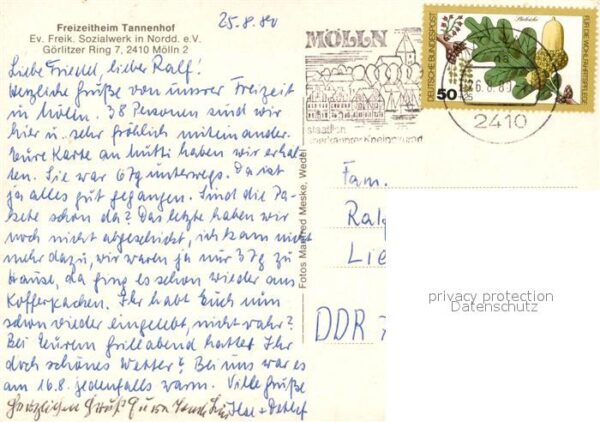 Freizeitheim Tannenhof
Ev. Freik. Sozialwerk in Nordd. e.V.
Görlitzer Ring 7, 2410 Mölln 2
25.8.80
Liebe Friedel, lieber Ralf!
Herzliche Grüße von unsrer Freizeit
in Mölln. 38 Personen sind wir
hier u. sehr fröhlich miteinander.
Eure Karte an Mutti haben wir erhal-
ten. Sie war 6 Tg unterwegs. Da ist
ja alles gut gegangen. Sind die Pa-
kete schon da? Das letzte haben wir
noch nicht abgeschickt, ich kam nicht
mehr dazu, wir waren ja nur 3 Tg zu
Hause, da ging es schon wieder ans
Kofferpacken. Ihr habt Euch nun
schon wieder eingelebt, nicht wahr?
Bei Eurem Grillabend hattet Ihr
doch schönes Wetter? Bei uns war es
am 16.8. jedenfalls warm. Viele Grüße
Herzlichen Gruß Ilse + Detlef
Fotos Manfred Meske, Wedel
MÖLLN
staatlich
anerkannter Kneippkurort
DEUTSCHE BUNDESPOST
50
25
Stieleiche
FÜR DIE WOHLFAHRTSPFLEGE
2410
Fam.
Ral
Lie
DDR 7
privacy protection
Datenschutz